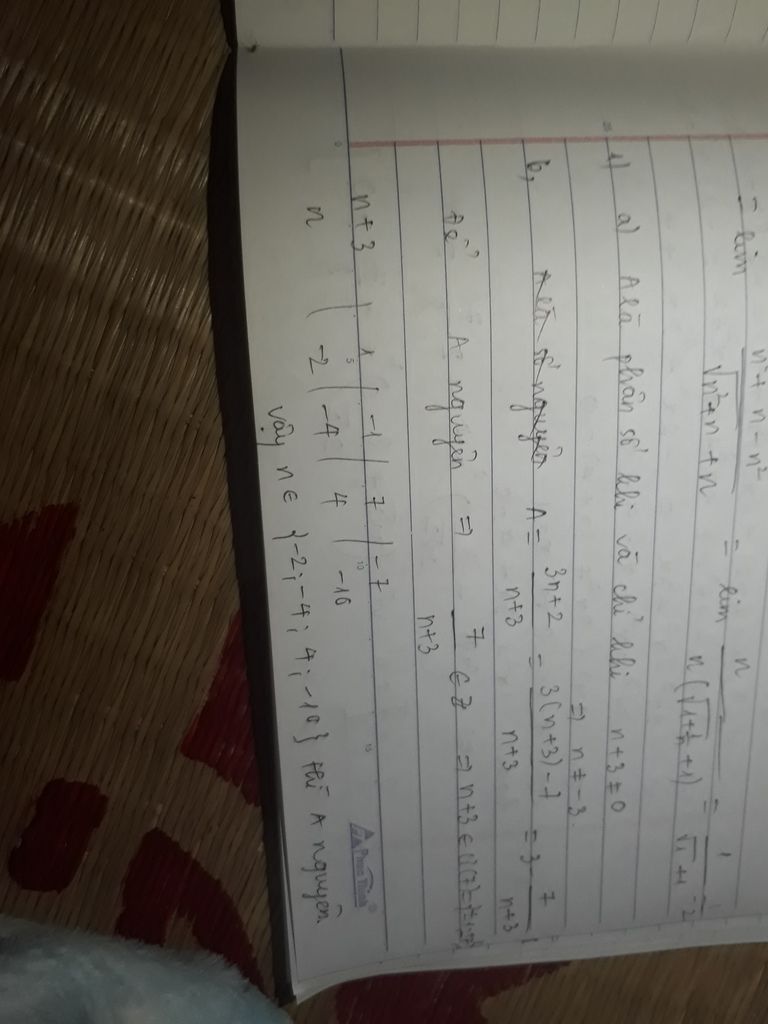 = lim n² + n - n² / √n² + n + n = lim n / n(√1 + 1/n + 1) = 1 / √1 + 1 = 1/2
1) a) A là phân số khi và chỉ khi n + 3 ≠ 0
=> n ≠ -3.
b, A là số nguyên A = 3n+2 / n+3 = 3(n+3) - 7 / n+3 = 3 - 7 / n+3
Để A nguyên => 7 / n+3 ∈ Z => n+3 ∈ Ư(7) = {±1; ±7}
n + 3 | 1 | -1 | 7 | -7
n | -2 | -4 | 4 | -10
Vậy n ∈ {-2; -4; 4; -10} thì A nguyên.